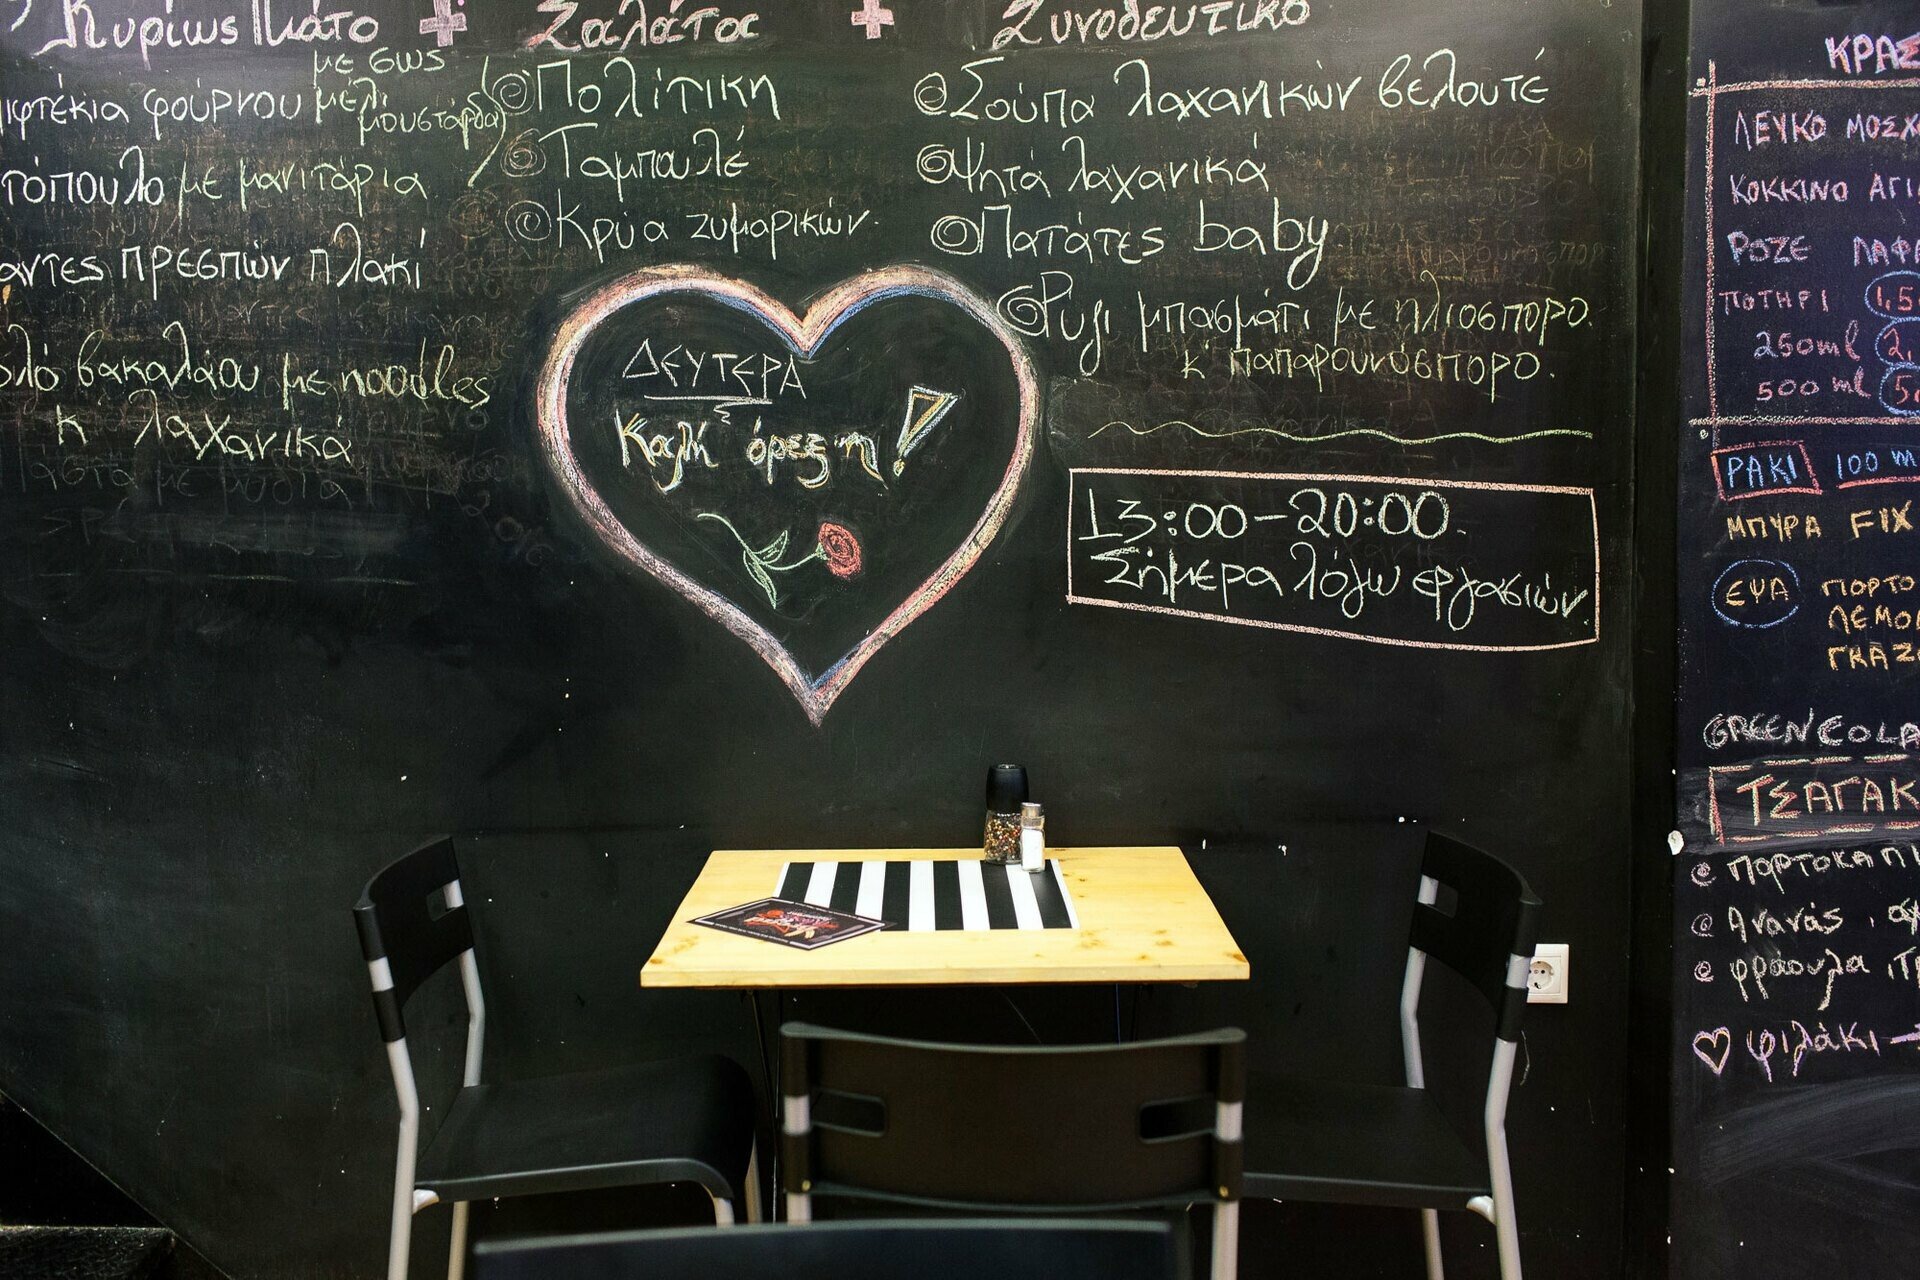 Κυρίως Πιάτο + Σαλάτος + Συνοδευτικό
με σως
ιφτέκια φούρνου μέλι
μουστάρδα
τόπουλο με μανιτάρια
αντες ΠΡΕΣΠών πλακί
ολό βακαλάου με noodles
κ λαχανικά
Πολίτικη
Ταμπουλέ
Κρύα ζυμαρικών.
Σούπα λαχανικών βελουτέ
Ψητά λαχανικά
Πατάτες baby
Ρύζι μπασμάτι με ηλιοσπορο.
κ παπαρουνόσπορο.
ΔΕΥΤΕΡΑ
Καλή όρεξη!
13:00-20:00.
Σήμερα λόγω εργασιών.
ΚΡΑΣ
ΛΕΥΚΟ ΜΟΣΧ
ΚΟΚΚΙΝΟ ΑΓΙ
ΡΟΖΕ ΛΑΦ
ΠΟΤΗΡΙ 1,5
250ml 2,
500ml 5,
ΡΑΚΙ 100 m
ΜΠΥΡΑ FIX
ΕΨΑ ΠΟΡΤΟ
ΛΕΜΟ
ΓΚΑΖ
GREEN COLA
ΤΣΑΓΑΚ
πορτοκαλι
Ανανάς,
φράουλα,
φιλάκι